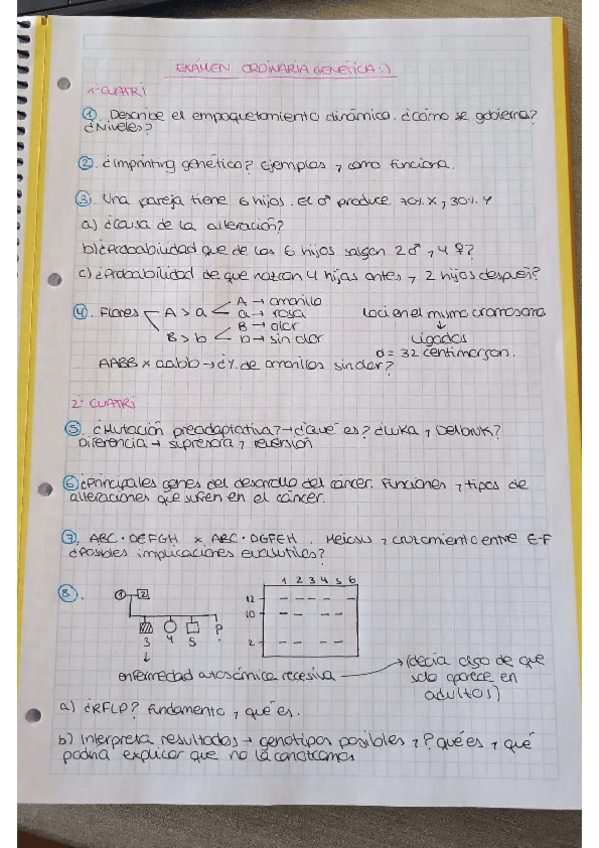 EXÁMEN ORDINARIA GENÉTICA :)
1º CUATRI
① Describe el empaquetamiento dinámico. ¿Cómo se gobierna?
¿Niveles?
② ¿Imprinting genético? Ejemplos y como funciona.
③ Una pareja tiene 6 hijos. El ♂ produce 70% X y 30% Y
a) ¿Causa de la alteración?
b) ¿Probabilidad que de los 6 hijos salgan 2♂ y 4♀?
c) ¿Probabilidad de que nazcan 4 hijas antes y 2 hijos después?
④ Flores A > a A → amarillo
a → rosa
B > b B → olor
b → sin olor
Loci en el mismo cromosoma
↓
Ligados
d = 32 centimorgan.
AABB x aabb → ¿% de amarillos sin olor?
2º CUATRI
⑤ ¿Mutación preadaptativa? → ¿Qué es? ¿Luria y Delbruk?
Diferencia → supresora y reversión
⑥ ¿Principales genes del desarrollo del cáncer. Funciones y tipos de
alteraciones que sufren en el cáncer.
⑦ ABC·DEFGH x ABC·DGFEH. Meiosis y cruzamiento entre E-F
¿Posibles implicaciones evolutivas?
⑧.
1 2
3 4 5 ?
1 2 3 4 5 6
12
10
2
enfermedad autosómica recesiva → (decía algo de que
solo aparece en
adultos)
a) ¿RFLP? Fundamento y qué es.
b) Interpreta resultados → genotipos posibles y ? qué es y qué
podría explicar que no la conozcamos